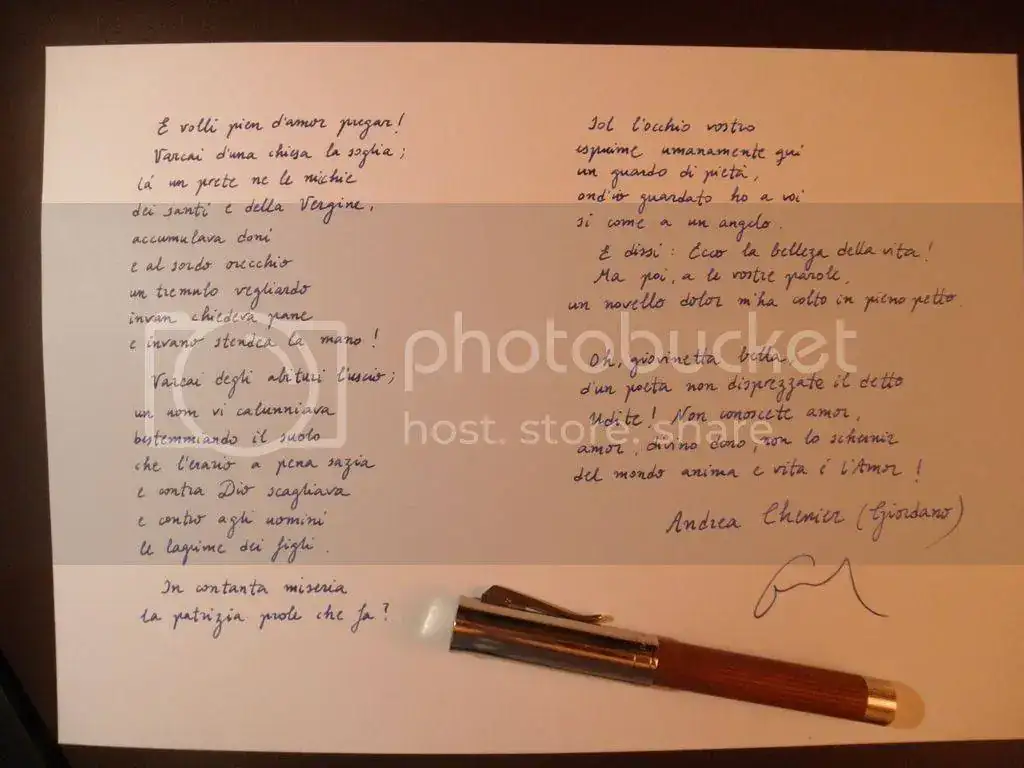 E volli pien d'amor pregar!
Varcai d'una chiesa la soglia;
là un prete ne le nicchie
dei santi e della Vergine,
accumulava doni
e al sordo orecchio
un tremulo vegliardo
invan chiedeva pane
e invano stendea la mano!
Varcai degli abituri l'uscio;
un uom vi calunniava
bestemmiando il suolo
che l'erario a pena sazia
e contra Dio scagliava
e contro agli uomini
le lagrime dei figli.
In contanta miseria
la patrizia prole che fa?
Sol l'occhio vostro
esprime umanamente qui
un guardo di pietà,
ond'io guardato ho a voi
si come a un angelo.
E dissi: Ecco la belleza della vita!
Ma poi, a le vostre parole,
un novello dolor m'ha colto in pieno petto.
Oh, giovinetta bella,
d'un poeta non disprezzate il detto
Udite! Non conoscete amor,
amor, divino dono, non lo schernir
del mondo anima e vita é l'Amor!
Andrea Chenier (Giordano)
photobucket
host. store. share